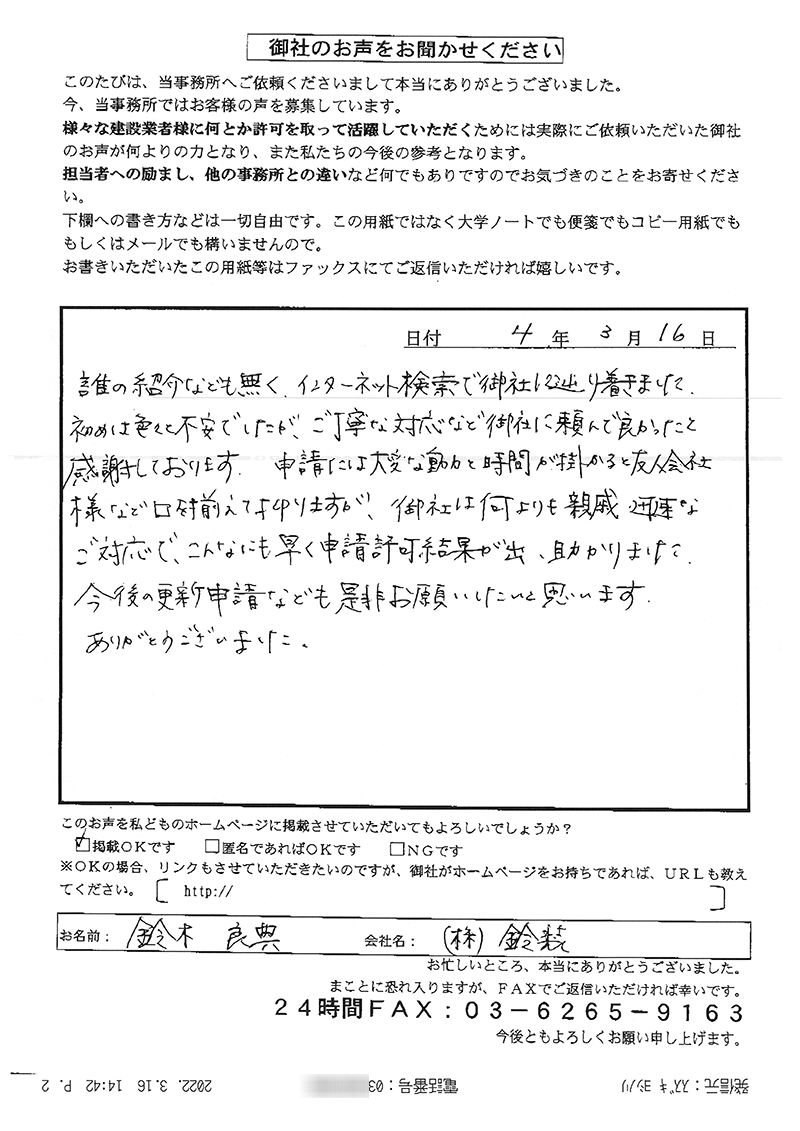 御社のお声をお聞かせください
このたびは、当事務所へご依頼くださいまして本当にありがとうございました。
今、当事務所ではお客様の声を募集しています。
様々な建設業者様に何とか許可を取って活躍していただくためには実際にご依頼いただいた御社
のお声が何よりの力となり、また私たちの今後の参考となります。
担当者への励まし、他の事務所との違いなど何でもありですのでお気づきのことをお寄せくださ
い。
下欄への書き方などは一切自由です。この用紙ではなく大学ノートでも便箋でもコピー用紙でも
もしくはメールでも構いませんので。
お書きいただいたこの用紙等はファックスにてご返信いただければ嬉しいです。
日付 4 年 3 月 16 日
誰の紹介なども無く、インターネット検索で御社に辿り着きました。
初めは色々と不安でしたが、ご丁寧な対応など御社に頼んで良かったと
感謝しております. 申請には大変な動力と時間が掛かると友人会社
様などロ対前えてよりますが、御社は何よりも親戚 迅速な
ご対応で、こんなにも早く申請許可結果が出、助かりました.
今後の更新申請なども是非お願いしたいと思います.
ありがとうございました.
このお声を私どものホームページに掲載させていただいてもよろしいでしょうか?
☑掲載OKです □匿名であればOKです □NGです
※OKの場合、リンクもさせていただきたいのですが、御社がホームページをお持ちであれば、URLも教え
てください。 [ http:// ]
お名前: 鈴木 良典 会社名: (株) 鈴装
お忙しいところ、本当にありがとうございました。
まことに恐れ入りますが、FAXでご返信いただければ幸いです。
24時間FAX:03-6265-9163
今後ともよろしくお願い申し上げます。
発信元:スズキ ヨシノリ 電話番号:03 2022. 3.16 14:42 P. 2